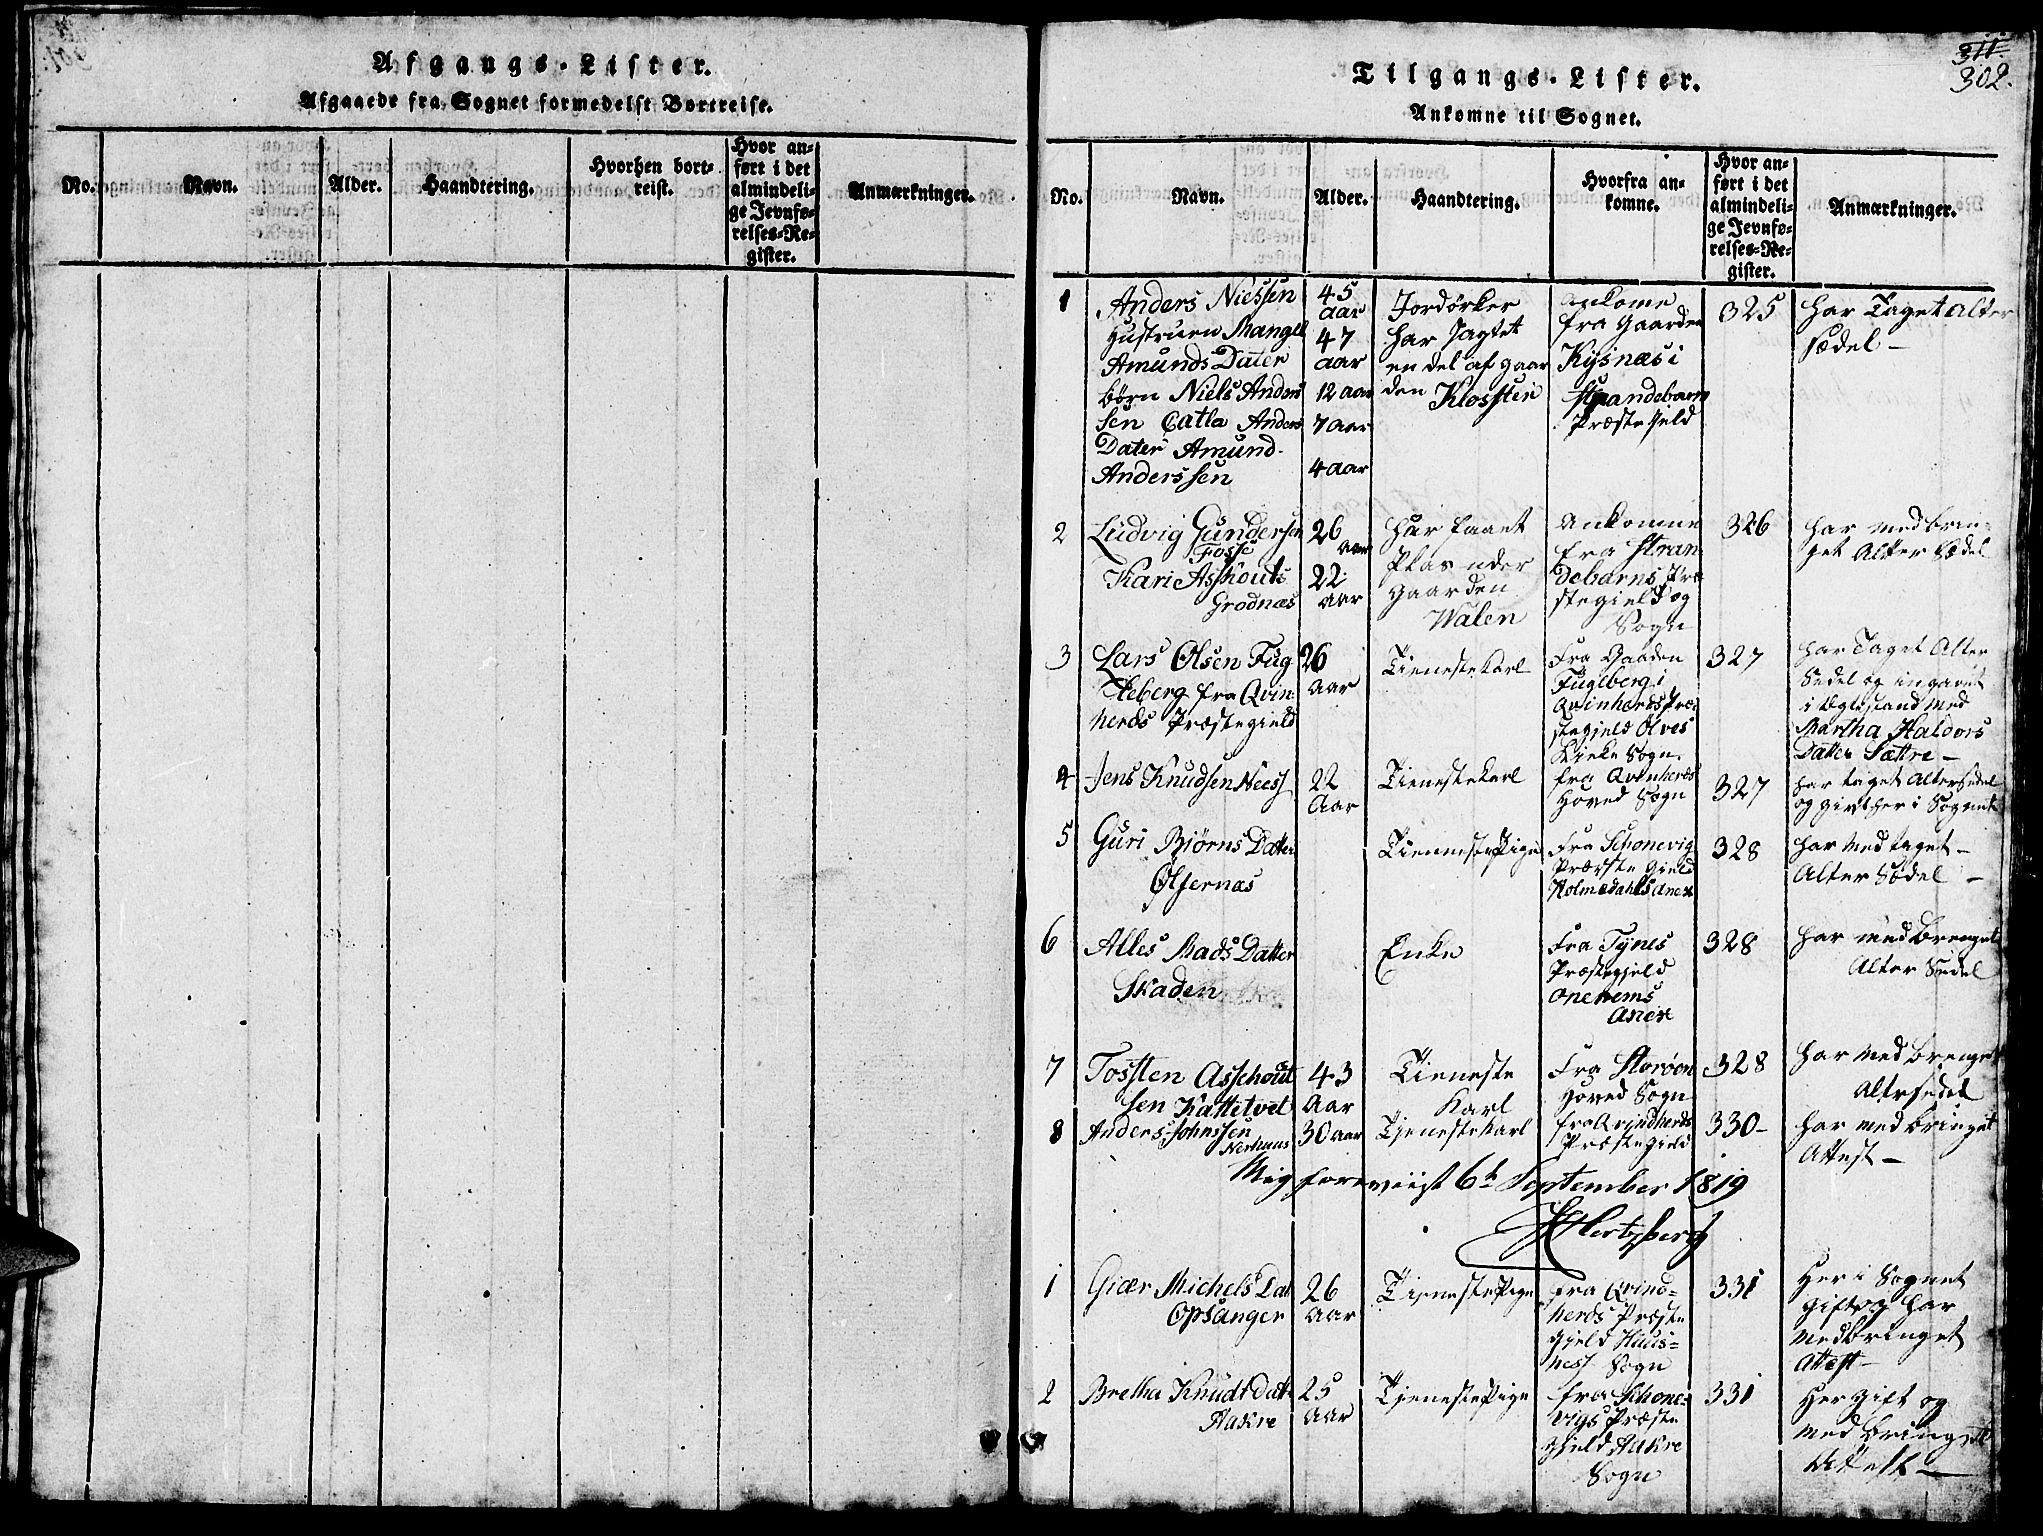 Afgangs-Lister.
Afgaaede fra Sognet formedelst Bortreise.
No.
Navn.
Alder.
Haandtering.
Hvorhen bort-
reist.
Hvor an-
ført i det
almindeli-
ge Jevnfø-
relses-Re-
gister.
Anmærkninger.
311.
302.
Tilgangs-Lister.
Ankomne til Sognet.
No.
Navn.
Alder.
Haandtering.
Hvorfra an-
komne.
Hvor an-
ført i det
almindeli-
ge Jevnfø-
relses-Re-
gister.
Anmærkninger.
1
Anders Nielssen
Hustruen Mangel
Amunds Dater
børn Niels Anders
sen Catla Anders
Dater Amund
Anderssen
45
aar
47
aar
12 aar
7 aar
4 aar
Jordørker
har
en del af gaar
den Kloster
ankome
fra Gaarden
Kysnæs i
Strandebarm
Præstegield
325
har Taget Alter
sædel -
2
Ludvig Gundersen
Fosse
Kari Asshouts
Grodnæs
26
aar
22
aar
har faaet
Plas
gaarden
Walen
Ankomne
fra Stran
debarns Præ
stegield og
Sogn
326
har medbrin-
get Alter Sædel
3
Lars Olsen Fug
leberg fra Qvin
herds Præstegield
26
aar
Tieneste Karl
Fra Gaaden
Fugleberg i
Qvinherds Præ
stegield Ølves
Kirke Sogn
327
har Taget Alter
Sedel og ingaaet
i Egtestand med
Martha Haldors
Datter Sættre -
4
Jens Knudsen Neess
22
Aar
Tieneste Karl
fra Qvinherds
Hoved Sogn
327
har taget Altersedel
og givt her i Sognet
5
Guri Biørns Datter
Ølfernæs
Tienneste Pige
Fra Schonevig
Præste Gield
Holmedahls Anex
328
har med taget -
Alter Sædel -
6
Alles Mads Datter
Skaden
Enke
Fra Tynes
Præstegjeld
onehems
Anex
328
har med brenget
Alter Sedel
7
Tossten Asschout
sen Kattetvet
43
Aar
Tieneste
Karl
Fra Storøen
Hoved Sogn
328
har med brenget
Altersedel
8
Anders Johnssen
Nerhuus
30 aar
Tjeneste Karl
fra Qvindherds
Præste Gield
330-
har med bringet
Attest -
Mig foreviist 6te September 1819
Hertzberg
1
Giær Michels Dat
Opsanger
26
aar
Tjeneste Pige
fra Qvind-
herds Præste
Gjeld Huus-
nest Sogn
331
Her i Sognet
gift og har
medbringet
Attest-
2
Bretha Knudt datt
Flakre
25
Aar
Tjeneste Pige
fra Schone-
vigs Præste
Gjeld Aakre
Sogn
331
Her gift og
med bringet
Attest -